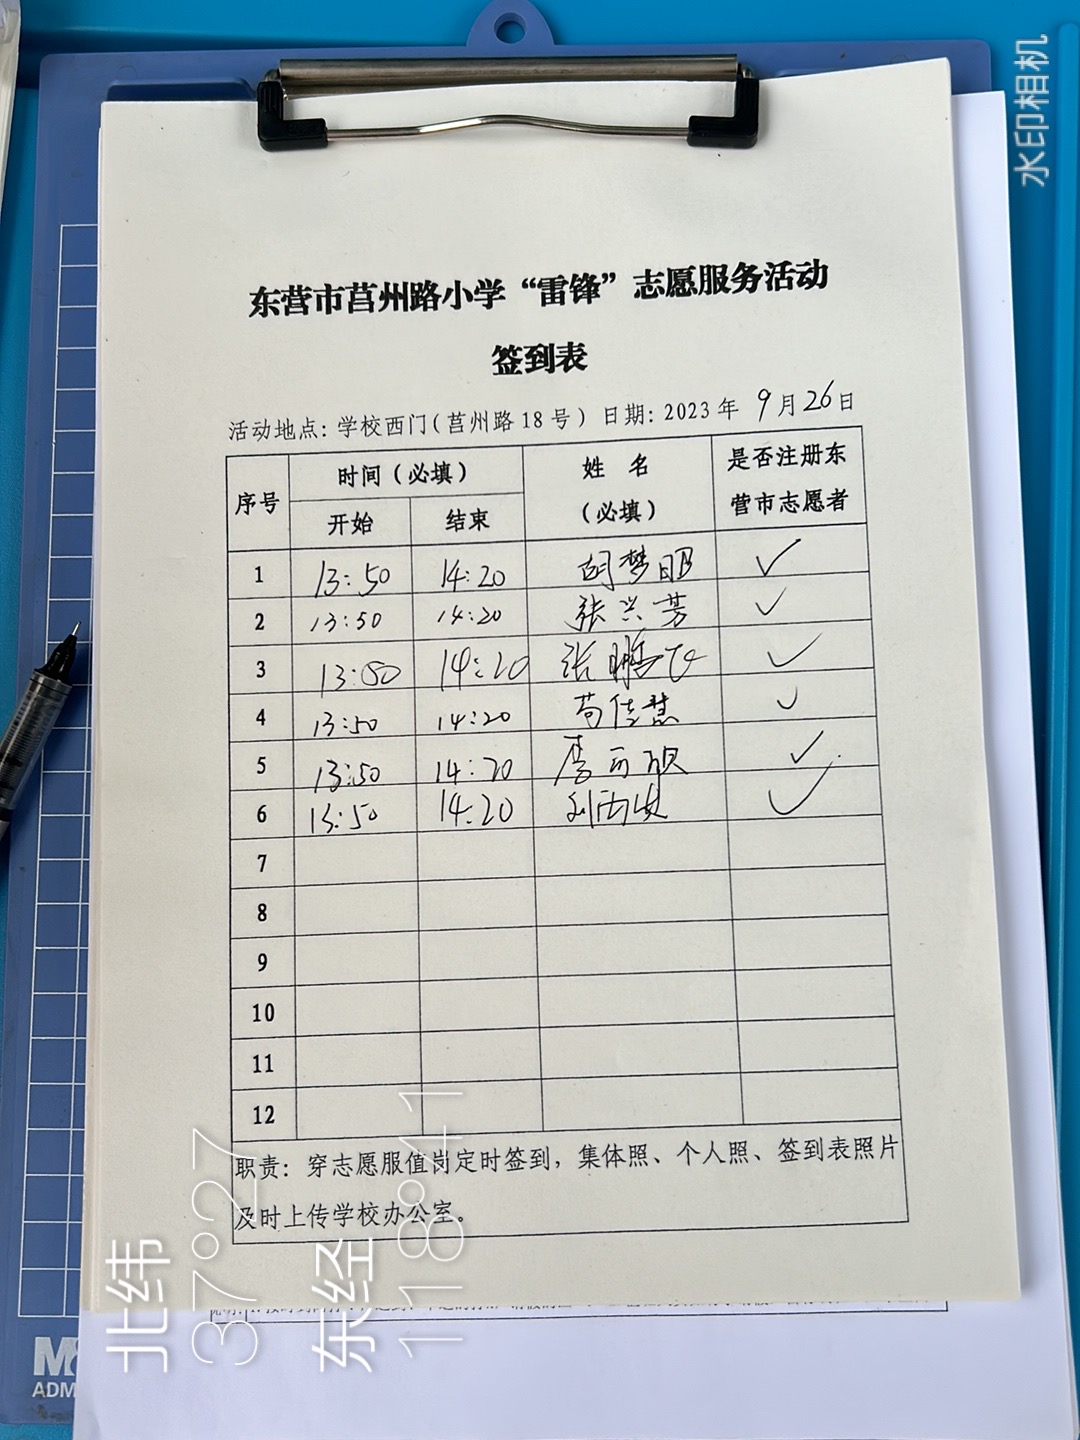 水印相机
东营市莒州路小学“雷锋”志愿服务活动
签到表
活动地点: 学校西门(莒州路18号) 日期: 2023年 9月26日
序号 时间(必填) 姓 名 是否注册东
开始 结束 (必填) 营市志愿者
1 13:50 14:20 胡梦 ✓
2 13:50 14:20 张兴芳 ✓
3 13:50 14:20 张鹏飞 ✓
4 13:50 14:20 苟佳慧 ✓
5 13:50 14:20 李可 ✓
6 13:50 14:20 刘雨 ✓
7
8
9
10
11
12
职责: 穿志愿服值岗定时签到, 集体照、个人照、签到表照片
及时上传学校办公室。
北纬
37°27
东经
118°41
M
ADM